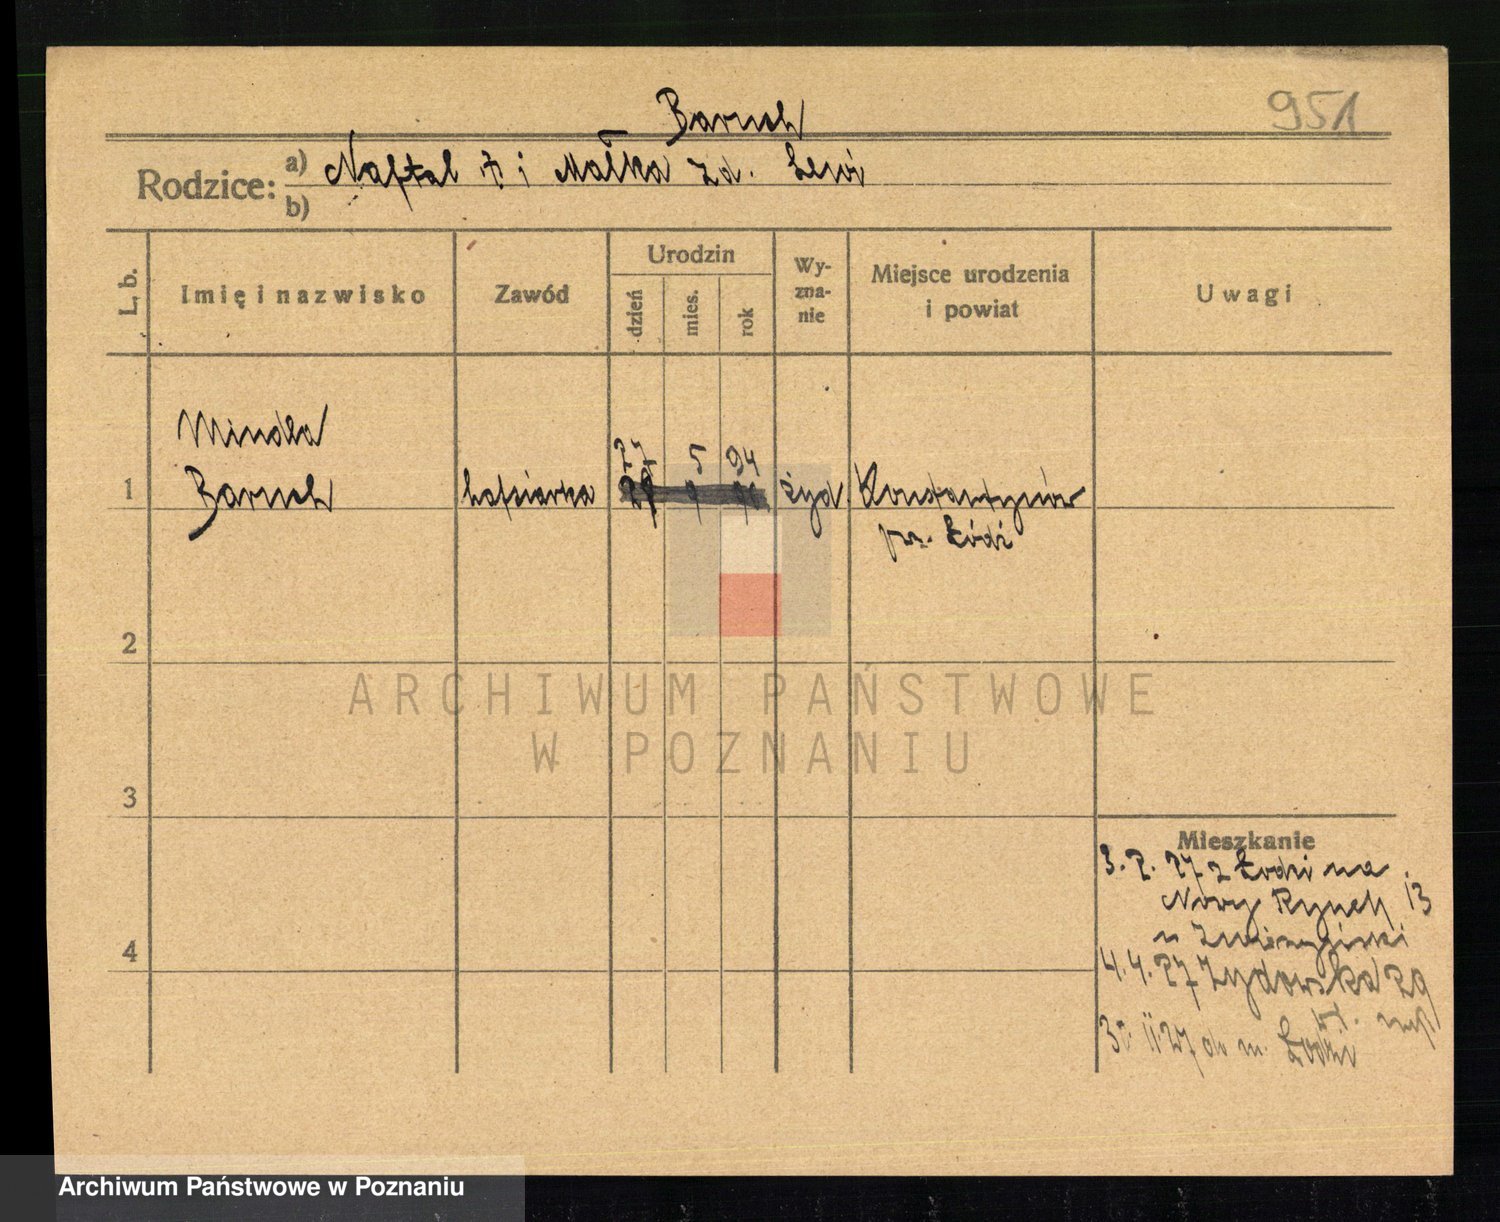 951
Baruch
Rodzice: a) Naftal i Małka zd. Lewi
b)
L. b.
Imię i nazwisko
Zawód
Urodzin
dzień
mies.
rok
Wy-
zna-
nie
Miejsce urodzenia
i powiat
Uwagi
Mindla
27 5 94
1 Baruch hafciarka żyd. Konstantynów
pw. Łódź
2
3
4
ARCHIWUM PAŃSTWOWE
W POZNANIU
Mieszkanie
3. 2. 27 z Łodzi na
Nowy Rynek 13
u
4. 4. 27 Żydowska 29
27 do m. Łodzi
Archiwum Państwowe w Poznaniu